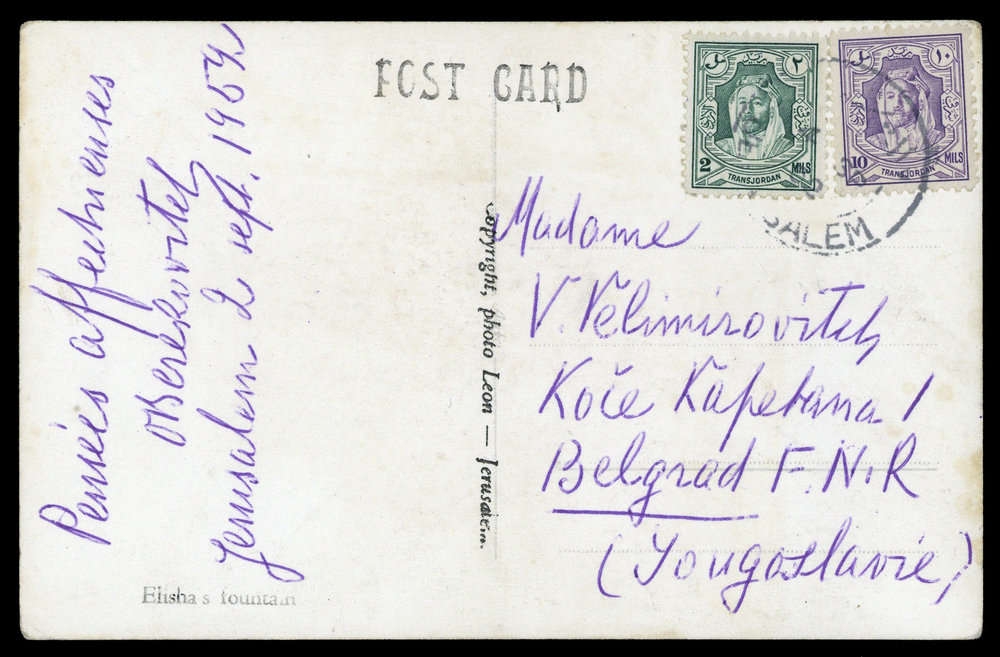 POST CARD
٢
2
MILS
TRANSJORDAN
١٠
10
MILS
TRANSJORDAN
SALEM
Pensées affectueuses
Jerusalem 2 sept. 195
Copyright, photo Leon — Jerusalem.
Madame
V. Vélimirovitch
Koče Kapetana 1
Belgrad F.N.R
(Yougoslavie)
Elisha's fountain